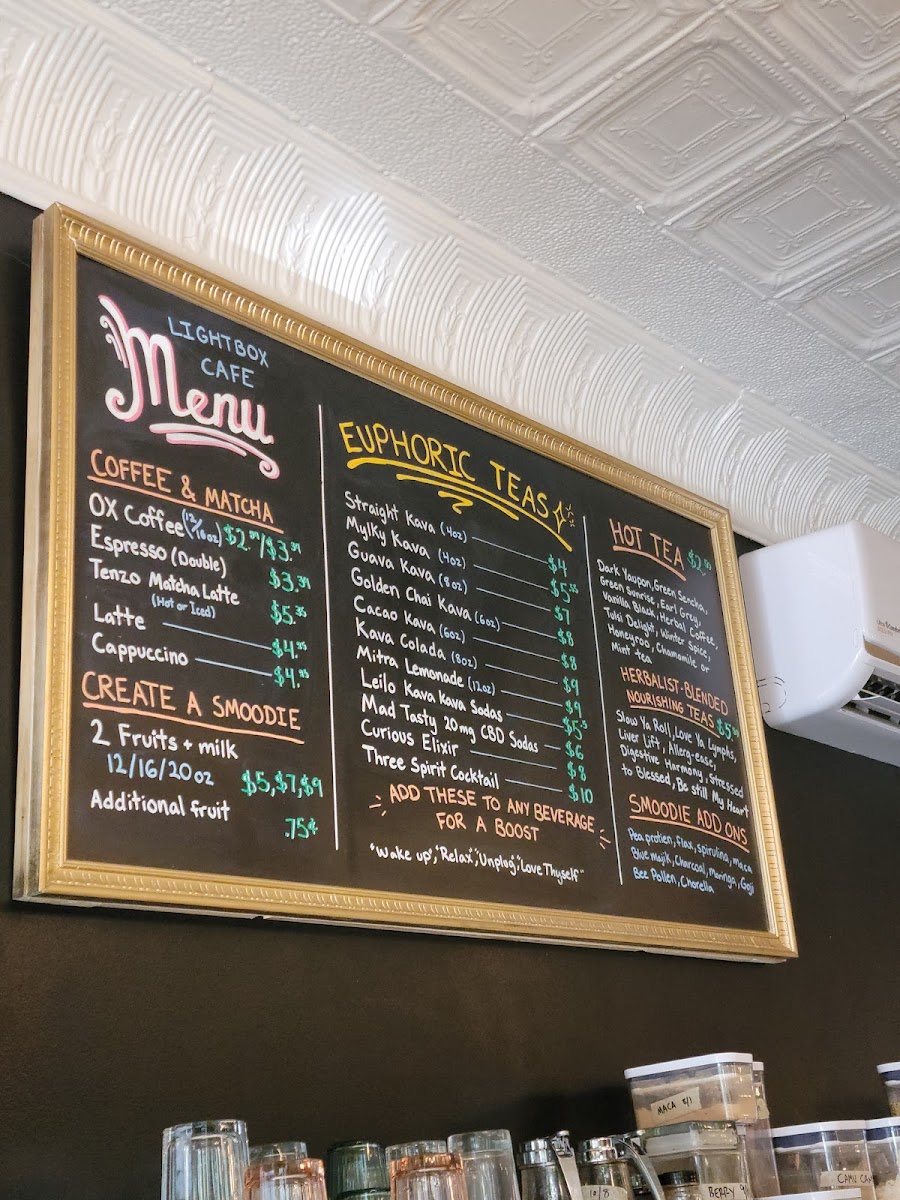 LIGHTBOX
CAFE
Menu
COFFEE & MATCHA
OX Coffee (12/16oz) $2.⁷⁹/$3.³⁹
Espresso (Double) $3.³⁹
Tenzo Matcha Latte
(Hot or Iced) $5.³⁵
Latte $4.⁹⁵
Cappuccino $4.⁹⁵
CREATE A SMOODIE
2 Fruits + milk
12/16/20oz $5,$7,$9
Additional fruit .75¢
EUPHORIC TEAS
Straight Kava (4oz) $4
Mylky Kava (4oz) $5.⁵⁵
Guava Kava (8oz) $7
Golden Chai Kava (6oz) $8
Cacao Kava (6oz) $8
Kava Colada (8oz) $9
Mitra Lemonade (12oz) $9
Leilo Kava Kava Sodas $5.⁵
Mad Tasty 20mg CBD Sodas $6
Curious Elixir $8
Three Spirit Cocktail $10
ADD THESE TO ANY BEVERAGE
FOR A BOOST
"Wake up", "Relax", "Unplug", "Love Thyself"
HOT TEA $2.⁵⁰
Dark Yaupon, Green Sencha,
Green Sunrise, Earl Grey,
Vanilla Black, Herbal Coffee,
Tulsi Delight, Winter Spice,
Honeyroo, Chamomile or
Mint tea
HERBALIST-BLENDED
NOURISHING TEAS $5.⁵⁰
Slow Ya Roll, Love Ya Lymphs,
Liver Lift, Allerg-ease,
Digestive Harmony, Stressed
to Blessed, Be still My Heart
SMOODIE ADD ONS
Pea protien, Flax, spirulina, Maca
Blue majik, Charcoal, Moringa, Goji
Bee Pollen, Chorella
MACA 8/1
BERRY
CAMU CAMU
10/8